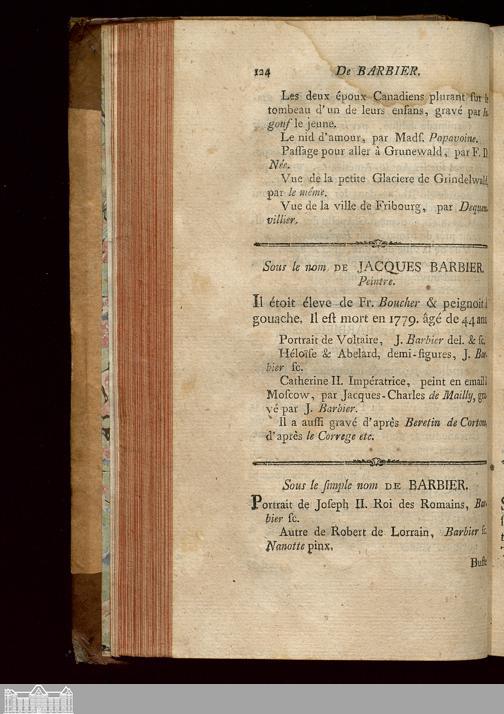 124 De BARBIER.
Les deux époux Canadiens plurant ſur
tombeau d'un de leurs enfans, gravé par
gouf le jeune.
Le nid d'amour, par Madſ. Popavoine.
Paſſage pour aller à Grunewald, par F. D
Née.
Vue de la petite Glaciere de Grindelwald
par le même.
Vue de la ville de Fribourg, par Dequen
villier.
Sous le nom DE JACQUES BARBIER
Peintre.
Il étoit éleve de Fr. Boucher & peignoit
gouache. Il eſt mort en 1779. âgé de 44 ans
Portrait de Voltaire, J. Barbier del. & ſc.
Héloïſe & Abelard, demi-figures, J. Bar
bier ſc.
Catherine II. Impératrice, peint en email
Moſcow, par Jacques-Charles de Mailly, gra
vé par J. Barbier.
Il a auſſi gravé d'après Beretin de Cortone,
d'après le Correge etc.
Sous le ſimple nom DE BARBIER.
Portrait de Joſeph II. Roi des Romains, Bar-
bier ſc.
Autre de Robert de Lorrain, Barbier ſc.
Nanotte pinx.
Buſte